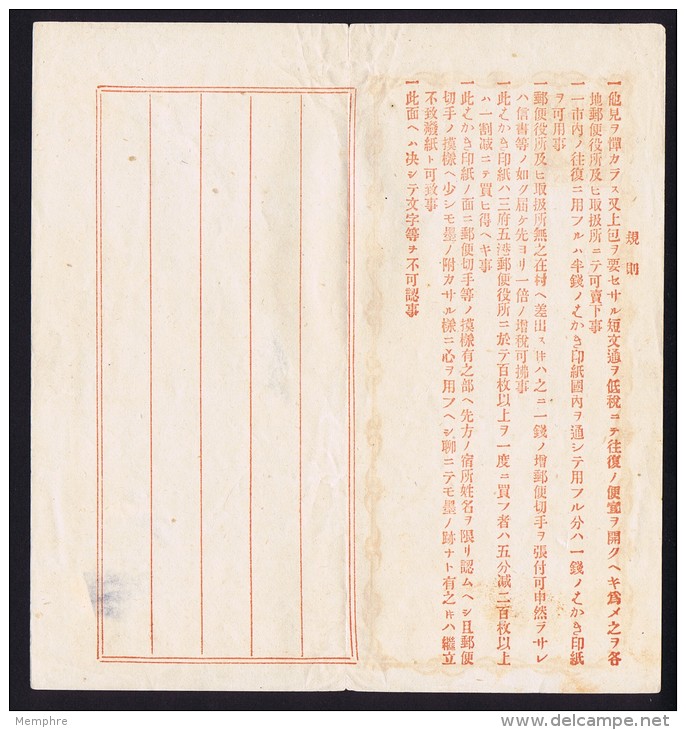 規則
一他見ヲ憚カラス又上包ヲ要セサル短文通ヲ低税ニテ往復ノ便宜ヲ開クヘキ爲メ之ヲ各
地郵便役所及ヒ取扱所ニテ可賣下事
一一市內ノ往復ニ用フルハ半錢ノはかき印紙國內ヲ通シテ用フル分ハ一錢ノはかき印紙
ヲ可用事
一郵便役所及ヒ取扱所無之在村ヘ差出ス𪜈ハ之ニ一錢ノ增郵便切手ヲ張付可申然ヲサレ
ハ信書等ノ如ク届ケ先ヨリ一倍ノ增税可拂事
一此はかき印紙ハ三府五港郵便役所ニ於テ百枚以上ヲ一度ニ買フ者ハ五分减二百枚以上
ハ一割减ニテ買ヒ得ヘキ事
一此はかき印紙ノ面ニ郵便切手等ノ摸樣有之部ヘ先方ノ宿所姓名ヲ限リ認ムヘシ且郵便
切手ノ摸樣ヘ少シモ墨ノ附カサル樣ニ心ヲ用フヘシ聊ニテモ墨ノ跡ナト有之𪜈ハ繼立
不致廢紙ト可致事
一此面ヘハ决シテ文字等ヲ不可認事
Memphre
delcampe.net